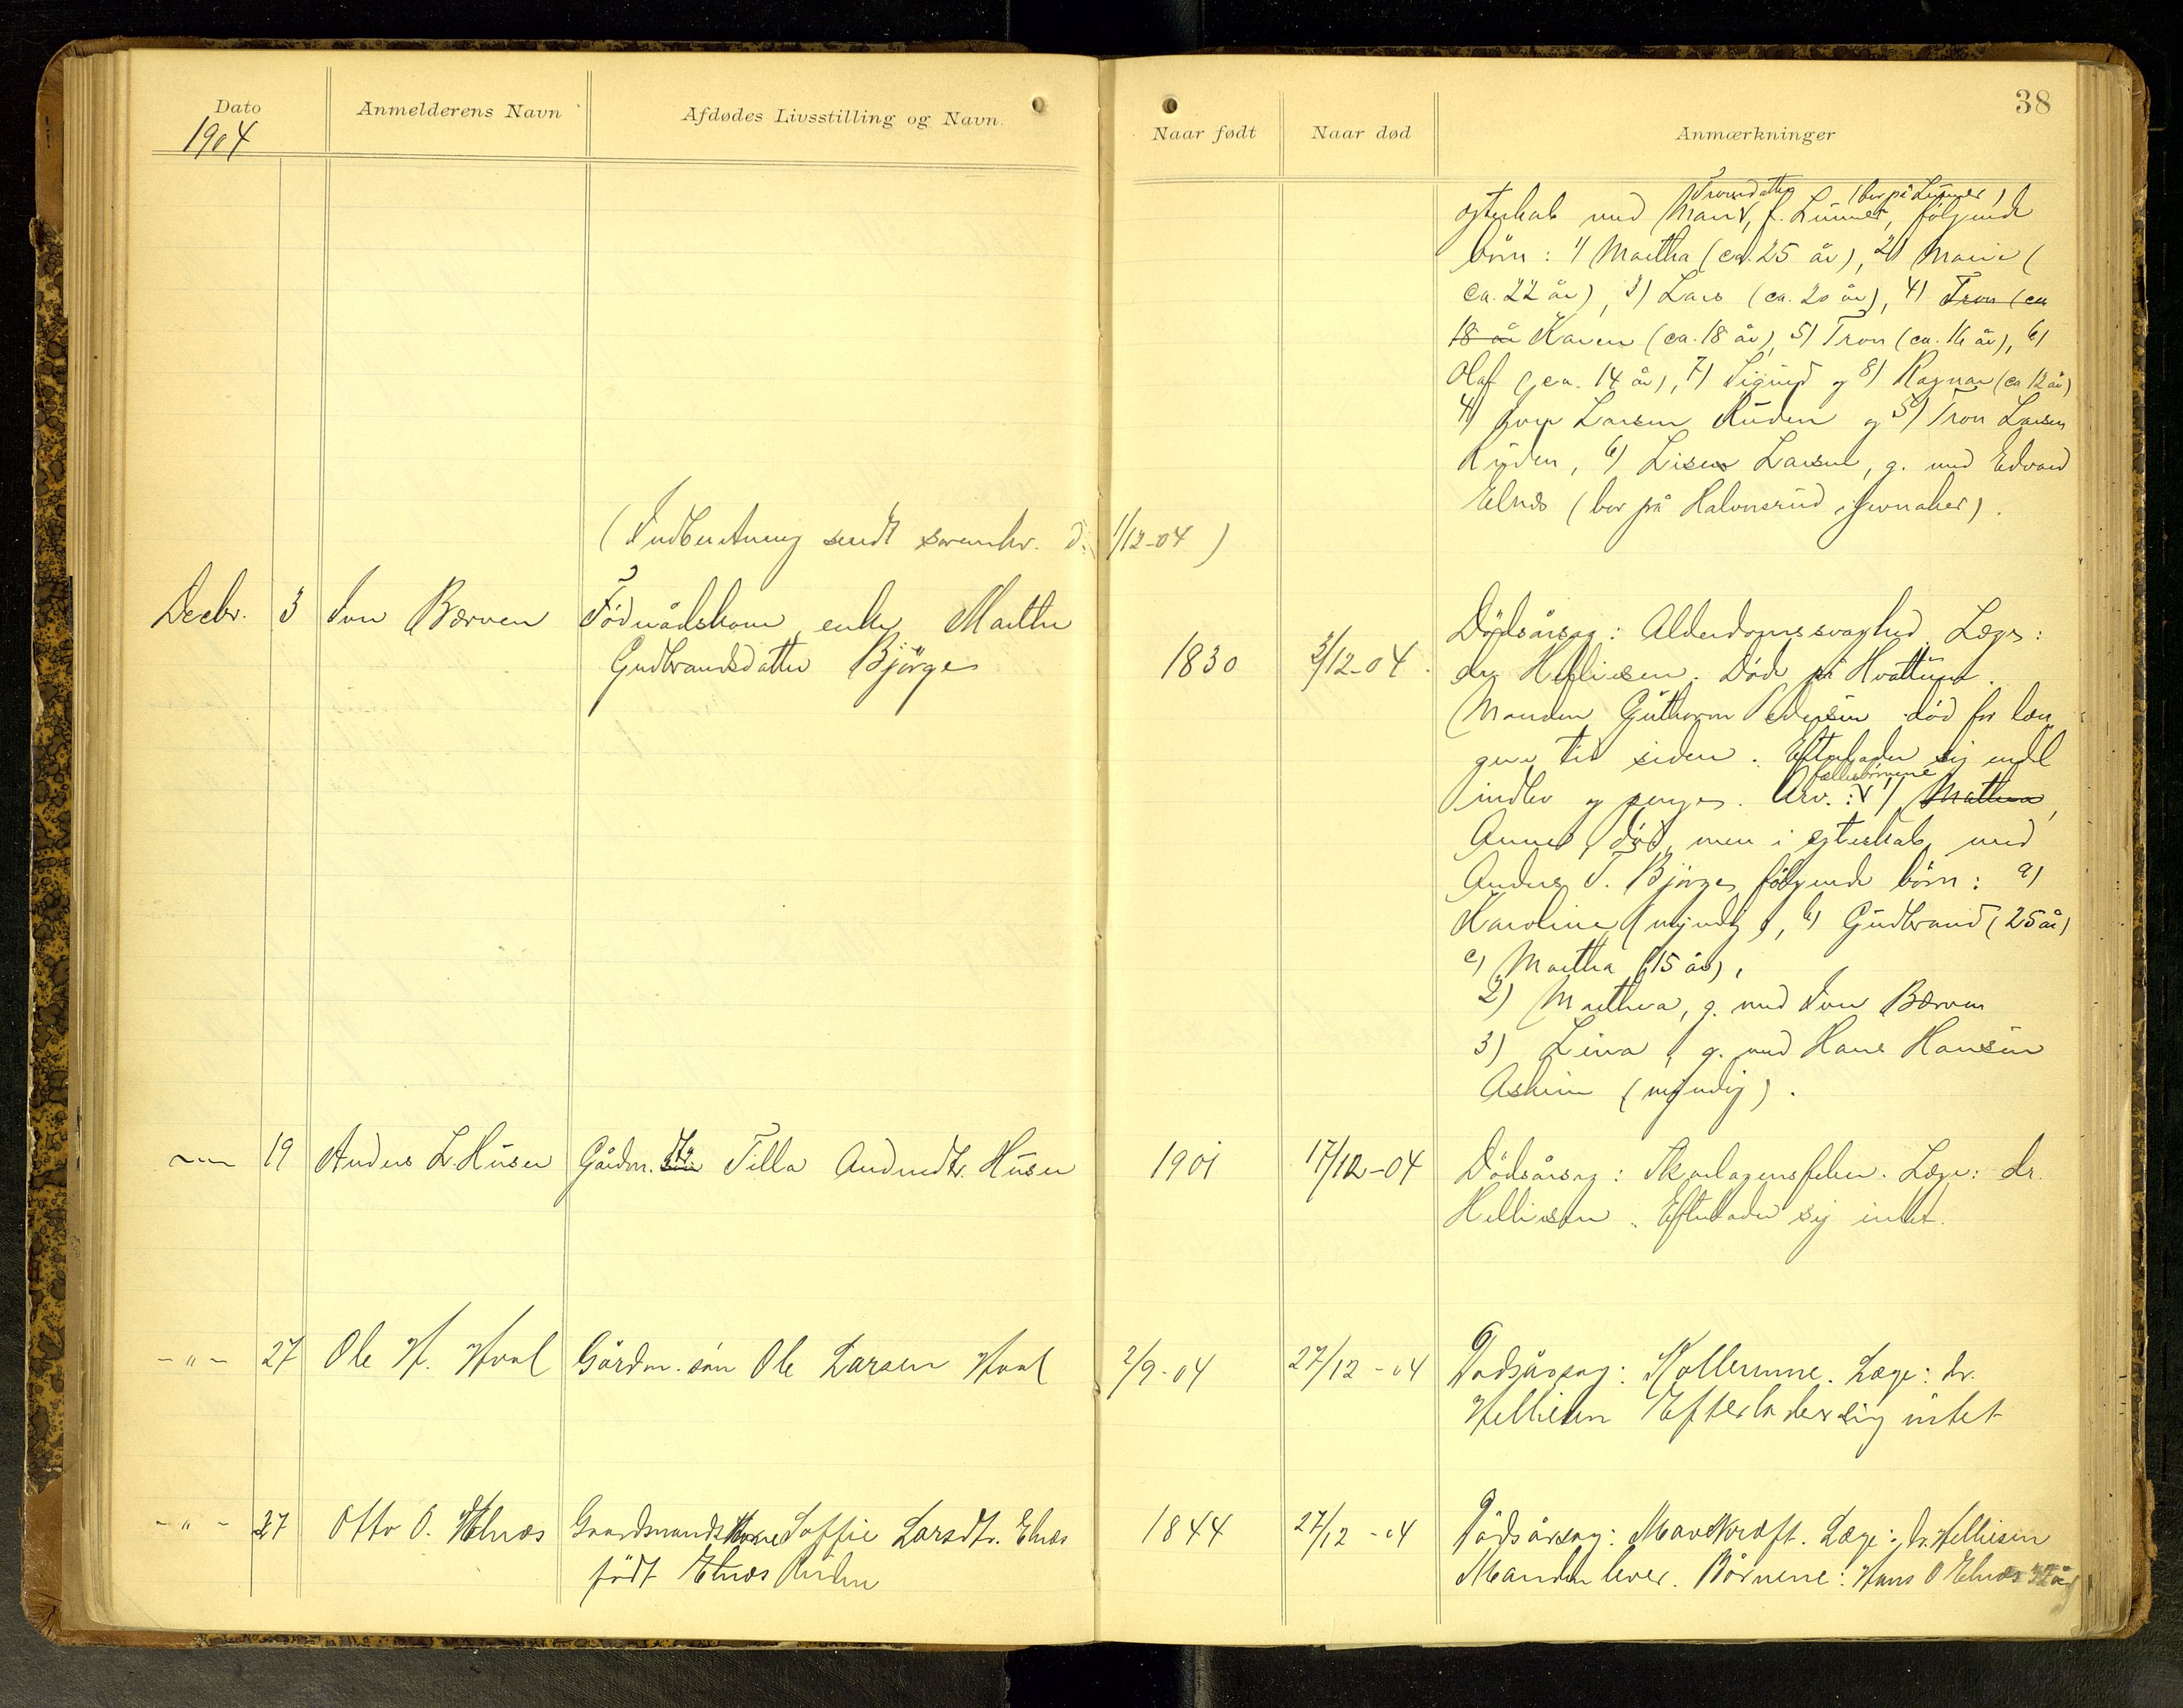 38
Dato
1904
Anmelderens Navn
Afdødes Livsstilling og Navn.
Naar født
Naar død
Anmærkninger
Tronsdatter (bor på Lunner)
egteskab med Mari, f. Lunner, følgende
børn: 1) Martha (ca. 25 år), 2) Marie (
ca. 22 år), 3) Lars (ca. 20 år), 4) Tron (ca
18 år Karen (ca. 18 år), 5) Tron (ca. 16 år), 6)
Olaf (ca. 14 år), 7) Sigurd og 8) Ragnar (ca 12 år)
4) Iver Larsen Ruden og 5) Tron Larsen
Ruden, 6) Lise Larsen, g. med Edvard
Elnæs (bor på Halvorsrud i Jevnaker).
(Indberetning sendt sorenskr. d. 1/12-04)
Decbr. 3 Iver Bærven Föderådskone, enke Marthe
Gudbrandsdatter Bjørge 1830 3/12-04.
Dødsårsag: Alderdomssvaghed. Læge:
dr. Helliesen. Døde på Hvattum.
Manden Guthorm Pedersen død for læn
gere tid siden. Efterlader sig endel
indbo og penge. Arv.: fællesbørnene 1) Mathea,
Anne, død, men i egteskab med
Anders T. Bjørge følgende børn: a)
Karoline (myndig), b) Gudbrand (25 år)
c) Martha (15 år),
2) Mathea, g. med Iver Bærven
3) Lina, g. med Hans Hansen
Askim (myndig).
-"- 19 Anders L. Husen Gårdm. dtr. Tilla Andersdtr. Husen 1901 17/12-04
Dødsårsag: Skarlagensfeber. Læge: dr.
Helliesen. Efterlader sig intet.
-"- 27 Ole H. Hval Gårdm. søn Ole Larsen Hval 2/9-04 27/12-04
Dødsårsag: Kollerinne. Læge: dr.
Helliesen Efterlader sig intet
-"- 27 Otto O. Elnæs Gaardmandskone Soffie Larsdtr. Elnæs
født Elnæs Ruden 1844 27/12-04
Dødsårsag: Mavekræft. Læge: dr. Helliesen
Manden lever. Børnene: Hans O Elnæs